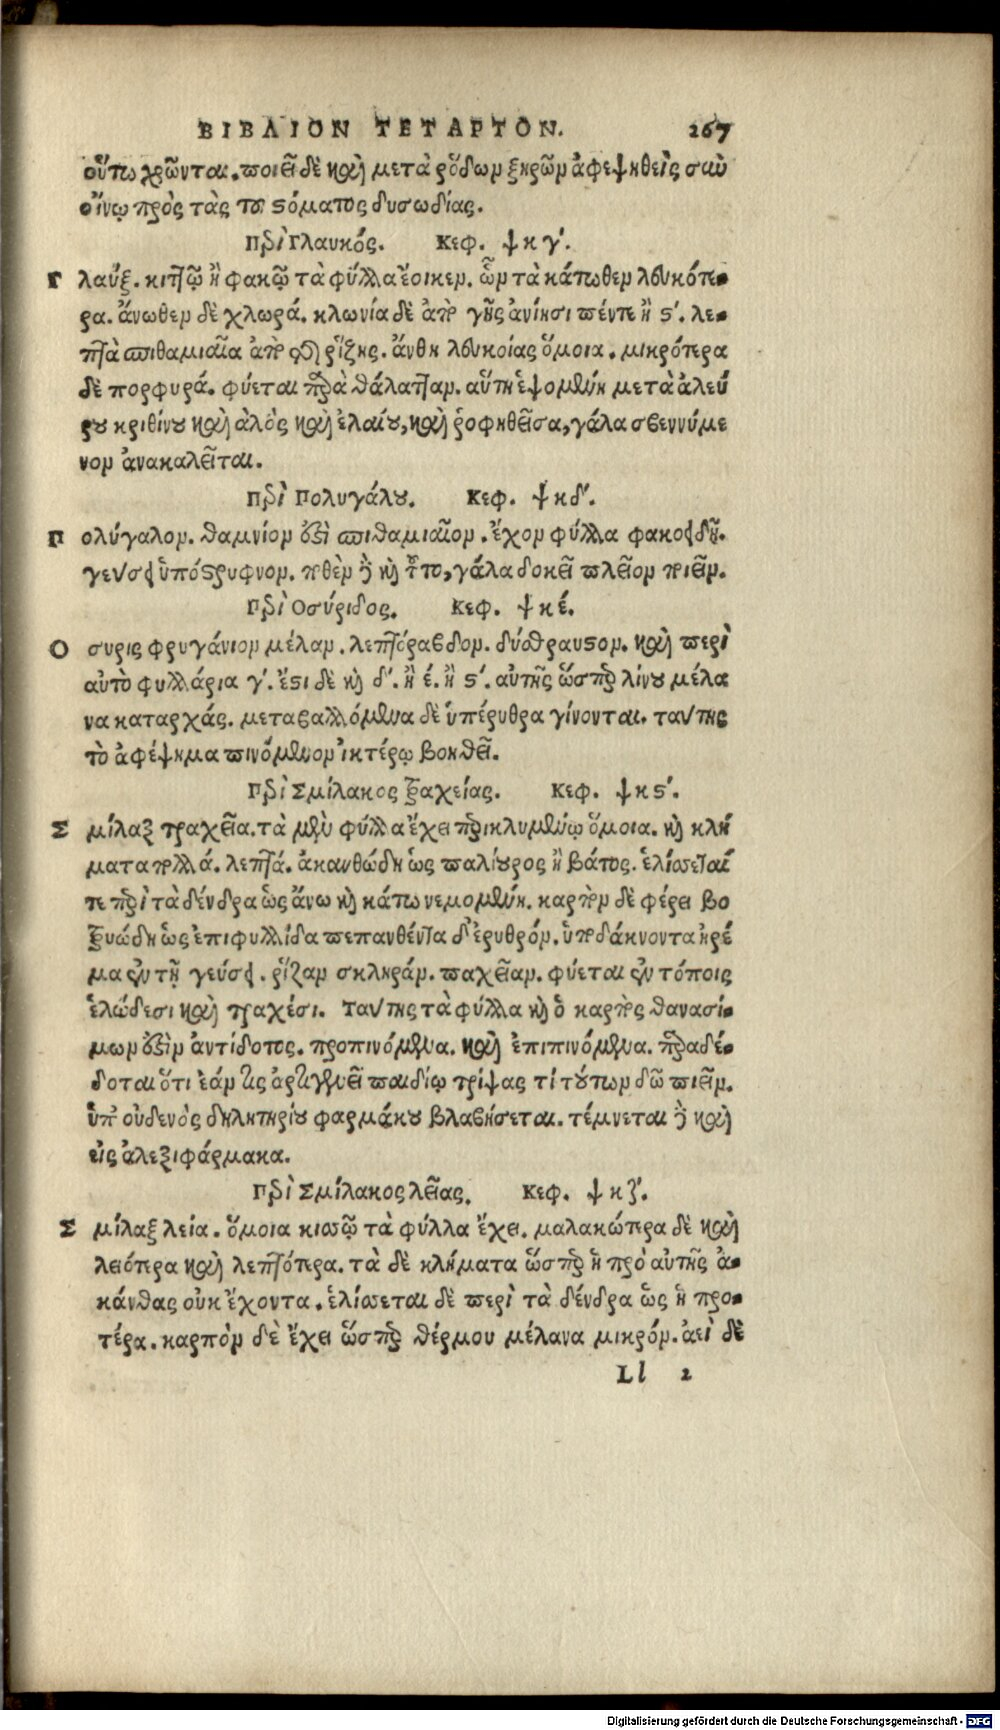 ΒΙΒΛΙΟΝ ΤΕΤΑΡΤΟΝ. 267
οὕτω χρῶνται. ποιεῖ δὲ καὶ μετὰ ῥόδων ξηρῶν ἀφεψηθεὶς σὺν
οἴνῳ πρὸς τὰς τοῦ στόματος δυσωδίας.
Περὶ Γλαυκός. Κεφ. ψκγ΄.
Γ λαύξ. κιτίῷ ἢ φακῷ τὰ φύλλα ἔοικεν. ὧν τὰ κάτωθεν λευκότε-
ρα. ἄνωθεν δὲ χλωρά. κλωνία δὲ ἀπὸ γῆς ἀνίησι πέντε ἢ ϛ΄. λε-
πτὰ σπιθαμιαῖα ἀπὸ τῆς ῥίζης. ἄνθη λευκοίας ὅμοια. μικρότερα
δὲ πορφυρά. φύεται παρὰ θάλατταν. αὕτη ἑψομένη μετὰ ἀλεύ
ρου κριθίνου καὶ ἁλὸς καὶ ἐλαίου, καὶ ῥοφηθεῖσα, γάλα σβεννύμε
νον ἀνακαλεῖται.
Περὶ Πολυγάλου. Κεφ. ψκδ΄.
Π ολύγαλον. θαμνίον ἐστὶ σπιθαμιαῖον. ἔχον φύλλα φακοειδῆ.
γεύσει ὑπόστρυφνον. ποθὲν δὲ καὶ τοῦτο, γάλα δοκεῖ πλεῖον ποιεῖν.
Περὶ Οσύριδος. Κεφ. ψκέ.
Ο συρις φρυγάνιον μέλαν. λεπτόραβδον. δύσθραυστον. καὶ περὶ
αὐτὸ φυλλάρια γ΄. ἔστι δὲ καὶ δ΄. ἢ έ. ἢ ϛ΄. αὐτῆς ὥσπερ λίνου μέλα
να καταρχάς. μεταβαλλόμενα δὲ ὑπέρυθρα γίνονται. ταύτης
τὸ ἀφέψημα πινόμενον ἰκτέρῳ βοηθεῖ.
Περὶ Σμίλακος τραχείας. Κεφ. ψκϛ΄.
Σ μίλαξ τραχεῖα. τὰ μὲν φύλλα ἔχει περικλυμένῳ ὅμοια. καὶ κλή
ματα πολλά. λεπτά. ἀκανθώδη ὡς παλίουρος ἢ βάτος. ἑλίσσεται
τε περὶ τὰ δένδρα ὡς ἄνω καὶ κάτω νεμομένη. καρπὸν δὲ φέρει βο
τρυώδη ὡς ἐπιφυλλίδα πεπανθέντα δ᾽ ἐρυθρόν. ὑποδάκνοντα ἠρέ
μα ἐν τῇ γεύσει. ῥίζαν σκληράν. παχεῖαν. φύεται ἐν τόποις
ἑλώδεσι καὶ τραχέσι. Ταύτης τὰ φύλλα καὶ ὁ καρπὸς θανασί-
μων ἐστὶν ἀντίδοτος. προπινόμενα. καὶ ἐπιπινόμενα. παραδέ-
δοται ὅτι ἐάν τις ἀρτιγενεῖ παιδίῳ τρίψας τὶ τούτων δῶ πιεῖν.
ὑπ᾽ οὐδενὸς δηλητηρίου φαρμάκου βλαβήσεται. τέμνεται δὲ καὶ
εἰς ἀλεξιφάρμακα.
Περὶ Σμίλακος λεῖας. Κεφ. ψκζ΄.
Σ μίλαξ λεία. ὅμοια κισσῷ τὰ φύλλα ἔχει. μαλακώτερα δὲ καὶ
λειότερα καὶ λεπτότερα. τὰ δὲ κλήματα ὥσπερ ἡ πρὸ αὐτῆς ἀ-
κάνθας οὐκ ἔχοντα. ἑλίσσεται δὲ περὶ τὰ δένδρα ὡς ἡ προ-
τέρα. καρπὸν δὲ ἔχει ὥσπερ θέρμου μέλανα μικρόν. ἀεὶ δὲ
Ll 2
Digitalisierung gefördert durch die Deutsche Forschungsgemeinschaft - DFG